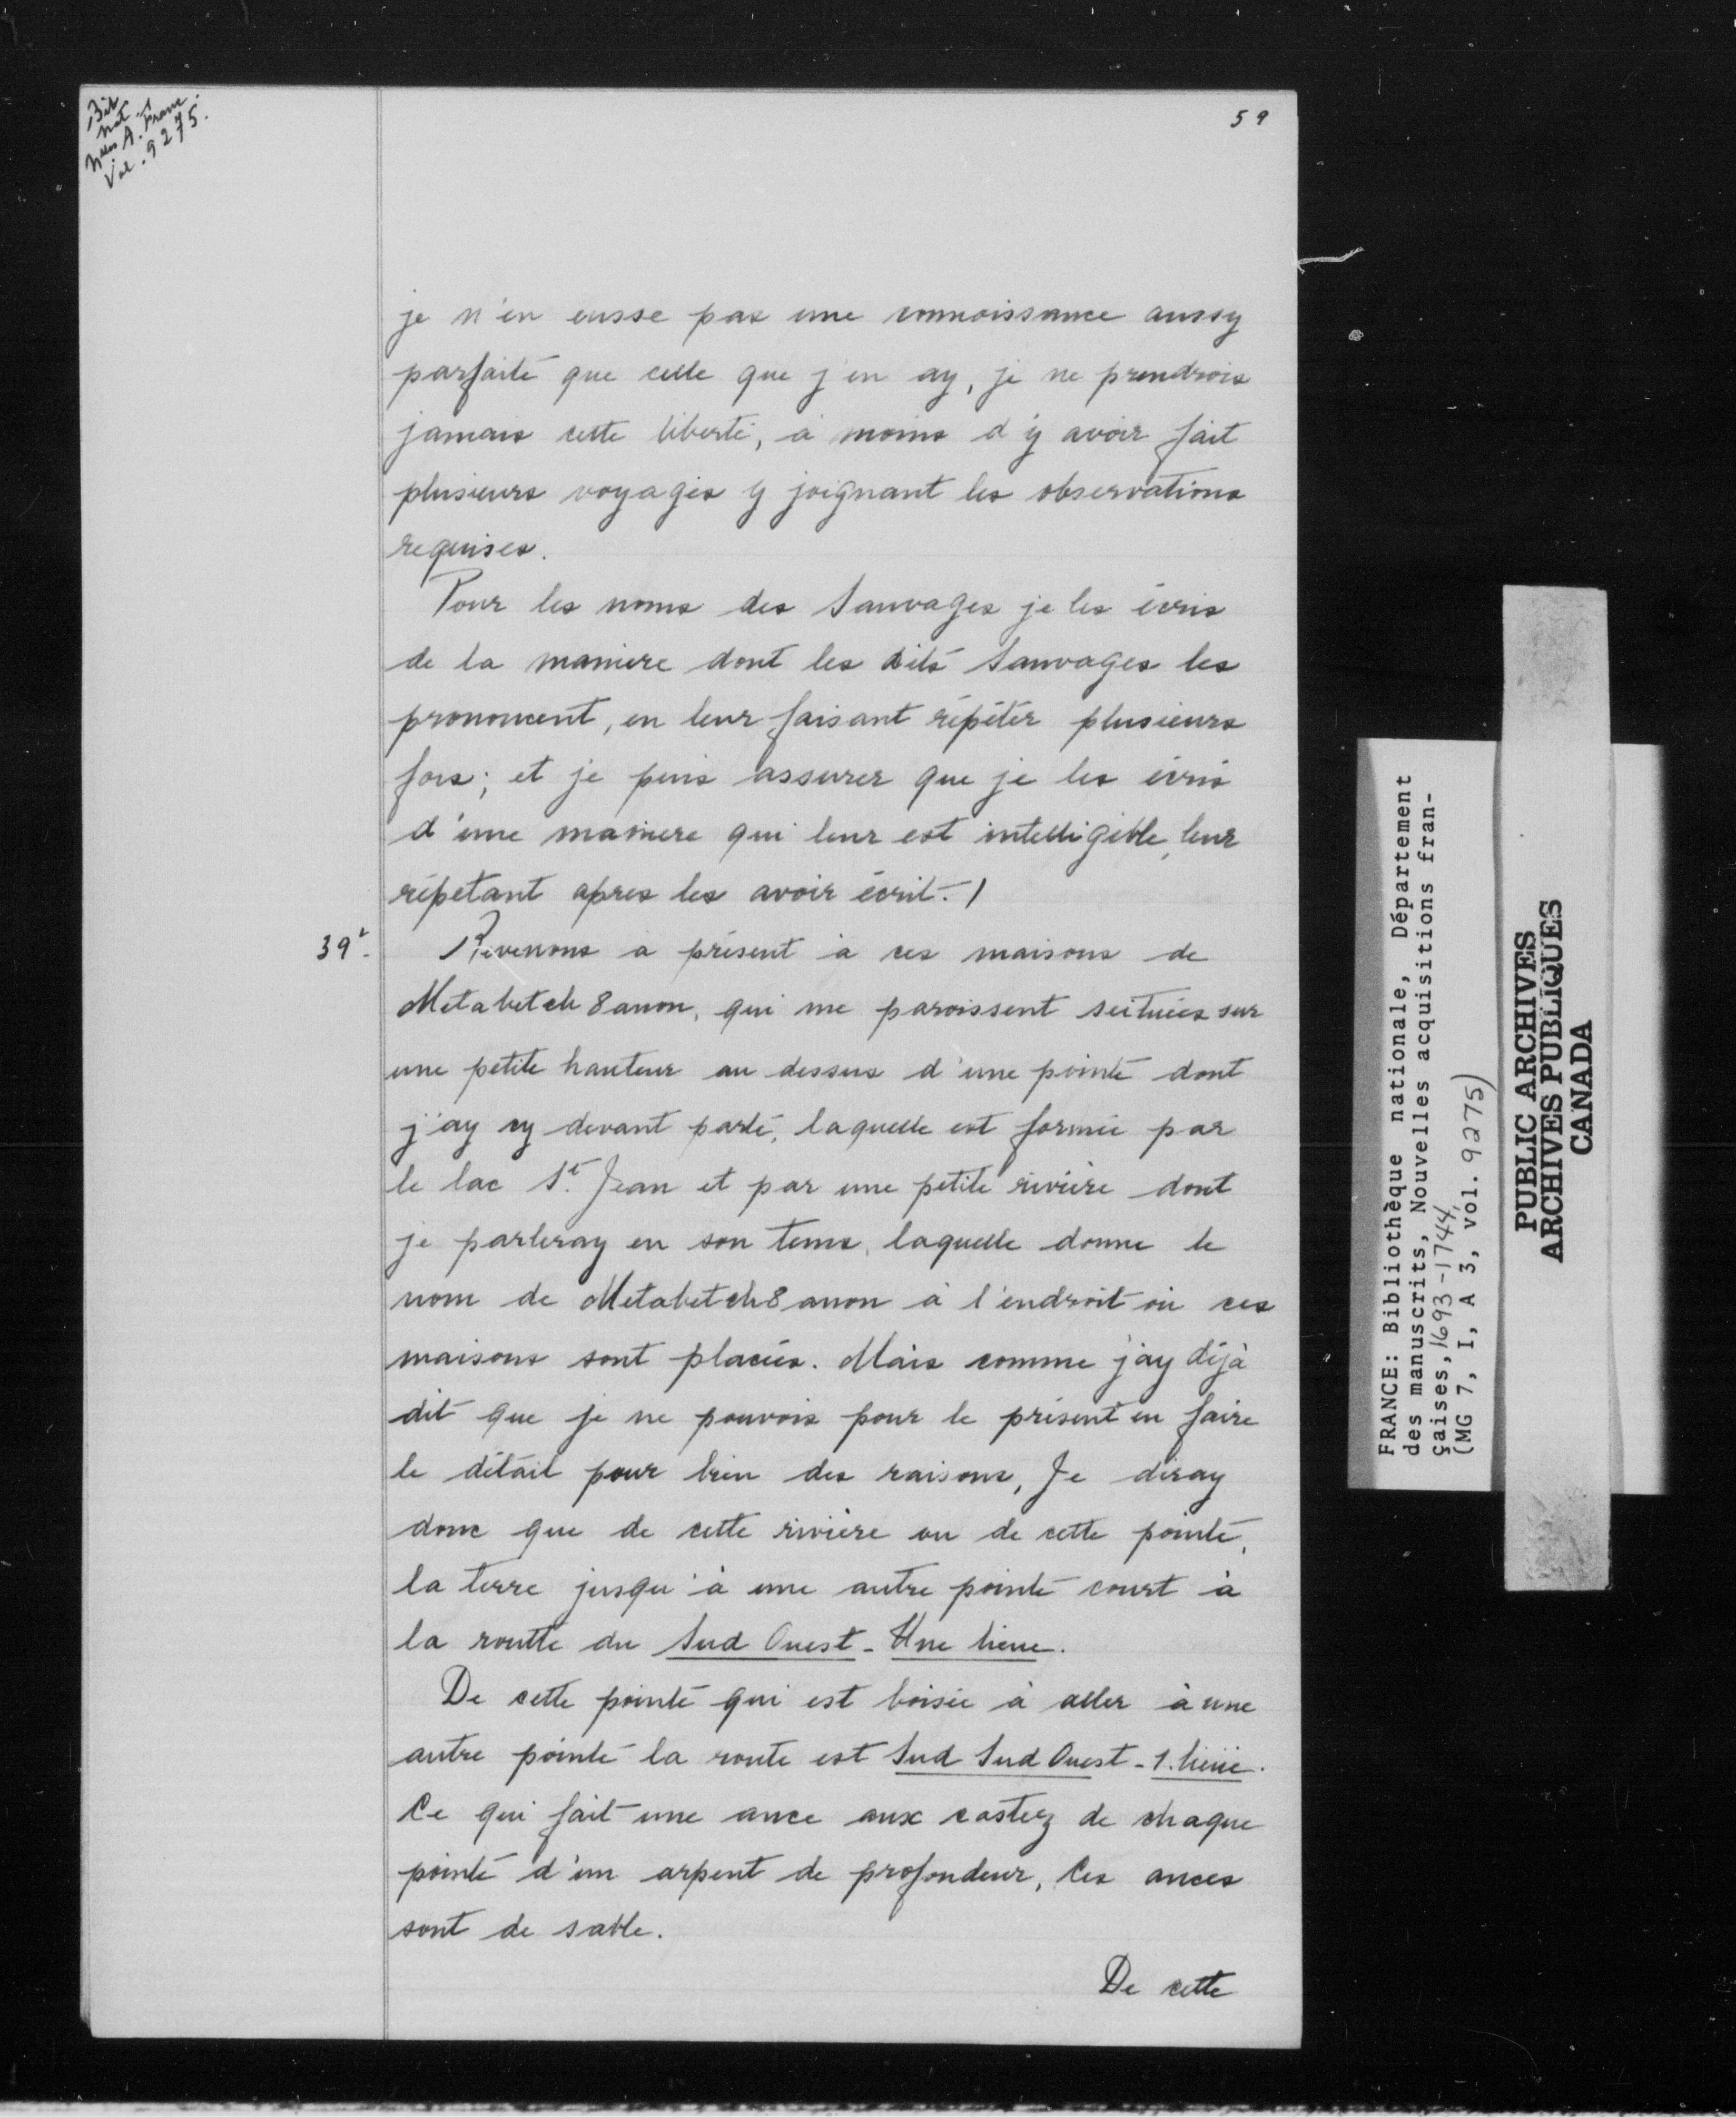 Bib
nat
Nlles A. Franc.
Vol. 9275.
59
je n'en eusse pas une connoissance aussy
parfaite que celle que j'en ay, je ne prendrois
jamais cette liberté, à moins d'y avoir fait
plusieurs voyages y joignant les observations
requises.
Pour les noms des Sauvages je les écris
de la maniere dont les dits Sauvages les
prononcent, en leur faisant répéter plusieurs
fois; et je puis assurer que je les écris
d'une maniere qui leur est intelligible, leur
répetant apres les avoir écrit. /
39
/Revenons a présent à ces maisons de
Metabetch8anon, qui me paroissent scituées sur
une petite hauteur au dessus d'une pointe dont
j'ay cy devant parlé, laquelle est formée par
le lac St. Jean et par une petite rivière dont
je parleray en son tems, laquelle donne le
nom de Metabetch8anon à l'endroit où ces
maisons sont placées. Mais comme j'ay déjà
dit que je ne pouvois pour le présent en faire
le détail pour bien des raisons, Je diray
donc que de cette rivière ou de cette pointe,
la terre jusqu'à une autre pointe court à
la routte du Sud Ouest - Une lieue.
De cette pointe qui est boisée à aller à une
autre pointe la route est Sud Sud Ouest - 1. lieüe.
Ce qui fait une ance aux costez de chaque
pointe d'un arpent de profondeur, Ces ances
sont de sable.
De cette
FRANCE: Bibliothèque nationale, Département
des manuscrits, Nouvelles acquisitions fran-
çaises, 1693-1744,
(MG 7, I, A 3, vol. 9275)
PUBLIC ARCHIVES
ARCHIVES PUBLIQUES
CANADA